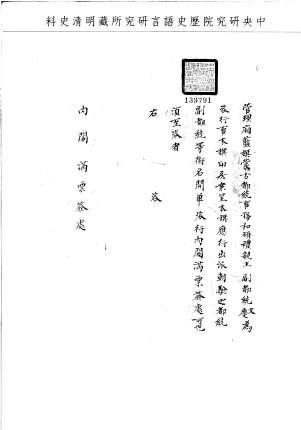 中央研究院歷史語言研究所藏明清史料
139791
管理廂藍旗蒙古都統事務和碩禮親王 副都統慶 文為
咨行事本旗印房案呈本旗應行出派朝驗之都統
副都統等銜名開單咨行內閣滿票簽處可也
須至咨者
右 咨
內閣滿票簽處